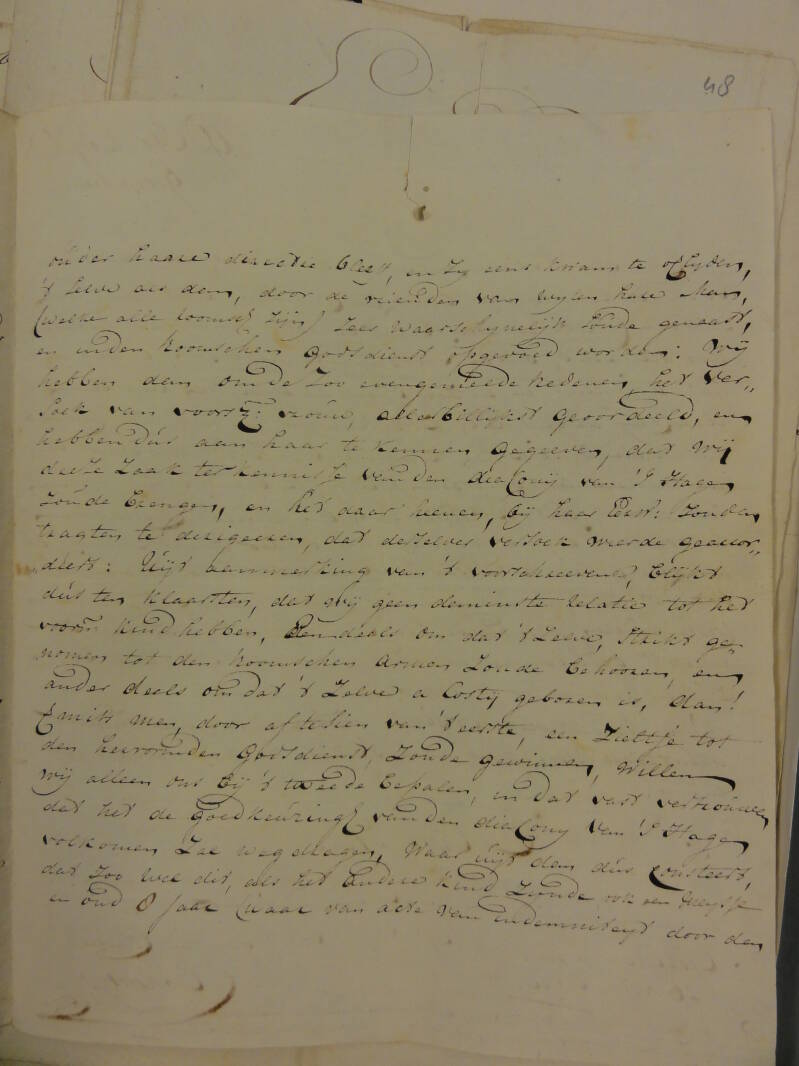 48
onder haare directie bleef, en zij eens kwam te overlyden,
't selve als dan, door de vrienden van wylen haar Man,
(welke alle rooms zijn) zeer waarschynelijk zoude genaast,
en in den Roomschen Godsdienst opgevoed worden: Wij
hebben dan om de zoo evengemeede Redenen, het ver„
soek van voorsz: vrouw, allesbillijkst geoordeeld, en
hebben dus aan haar te kennen gegeeven, dat Wij
deeze Zaak ter kennisse van den diaConij van 's Hage
zoude brengen, en het daar heenen, bij haar Eerw: zouden
tragten te dirigeeren, dat deselver versoek wierde geaccor„
deert: Uyt aanmerking van 't voorschreevene, blijkt
dus ten klaarsten, dat wij geen deminste relatie tot het
voorsz kind hebben, Eendeels om dat 't Zelve, strikt ge„
nomen tot den roomschen armen Zoude behooren, en
ander deels om dat 't Zelve a Costy geboren is, dan!
Emits men, door af te sien van 't eerste, een Zieltje tot
den hervormden Godsdienst, Zoude gewinnen, Willen
wij alleen ons bij 't tweede bepalen, en dat vast vertrouwen
dat het de Goedkeuring van den diaCony van 's Hage
volkomen Zal wegdragen, Waar uyt dan dus Consteert,
dat zoo wel dit, als het andere kind, Zynde ook een Meysje
en oud 8 Jaar (waar van acte van indemniteyt door den